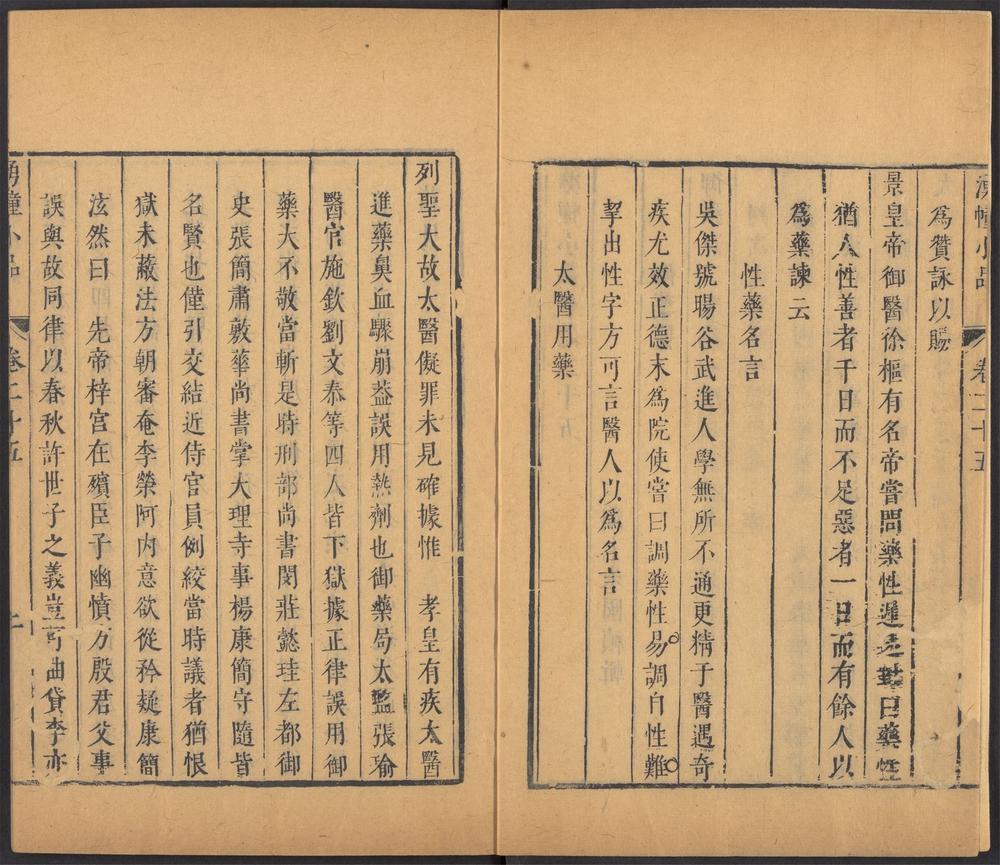 湧幢小品 卷二十五
為贊詠以賜
景皇帝御醫徐樞有名帝嘗問藥性遲速對曰藥性
猶人性善者千日而不足惡者一日而有餘人以
為藥諫云
性藥名言
吳傑號暘谷武進人學無所不通更精于醫遇奇
疾尤效正德末為院使嘗曰調藥性易調自性難
挈出性字方可言醫人以為名言
太醫用藥
列聖大故太醫儗罪未見確據惟 孝皇有疾太醫
進藥鼻血驟崩葢誤用熱劑也御藥局太監張瑜
醫官施欽劉文泰等四人皆下獄據正律誤用御
藥大不敬當斬是時刑部尚書閔莊懿珪左都御
史張簡肅敷華尚書掌大理寺事楊康簡守隨皆
名賢也僅引交結近侍官員例絞當時議者猶恨
獄未蔽法方朝審奄李榮阿內意欲從矜疑康簡
泫然曰 先帝梓宮在殯臣子幽憤方殷君父事
誤與故同律以春秋許世子之義豈可曲貸李亦
湧幢小品 卷二十五 二